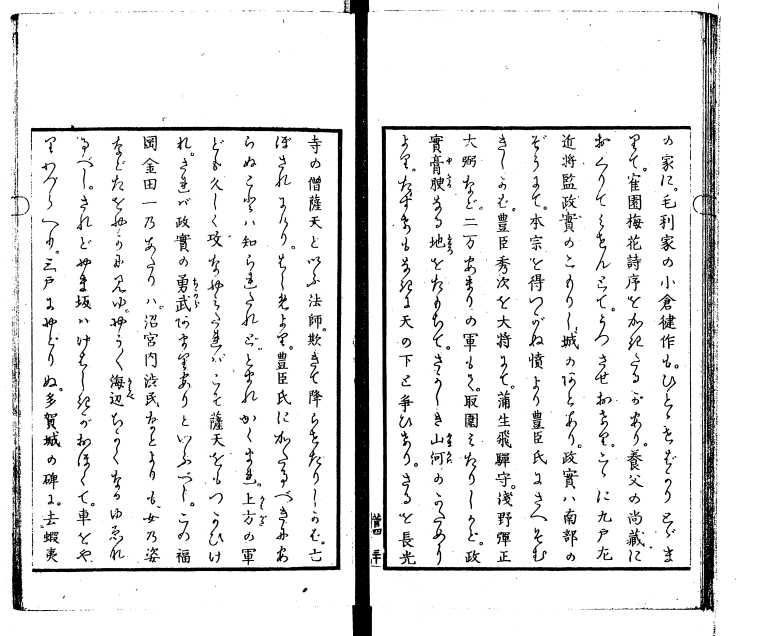 の家に。毛利家の小倉健作も。ひとときばかりとどま
りて。隺園梅花詩序をかきたるがあり。養父の尚蔵に
おくりてよませんとて。うつさせおきけり。こゝに九戸左
近将監政實のこもりし城のあとあり。政實ハ南部の
ぞうにて。本宗を得つがぬ憤より豊臣氏にさへそむ
きしかば。豊臣秀次を大将にて。蒲生飛騨守。浅野弾正
大弼など。二万あまりの軍もて。取圍みたりしかど。政
實膏腴なる地をたもちて。さかしき山何のかためあり
天の下と争ひ さるを長光
寺の僧薩天といふ法師。欺きて降らせたりしかば。亡
ぼされにけり。もとより。豊臣氏にかたるべきにあ
らぬことハ知られたれど。とまれかくまれ。上方の軍
ども久しく攻なやみたればこそ薩天をもつかひけ
れ。されば政實の勇武あまりありといふべし。この福
岡金田一乃あたりハ。沼宮内渋民などよりも。女乃姿
などたをやかに見ゆ。やうやく海辺ちかくなるゆゑな
るべし。されどやま坂ハけはしきがおほくて。車をや
三戸にやどりぬ。多賀城の碑に。去蝦夷